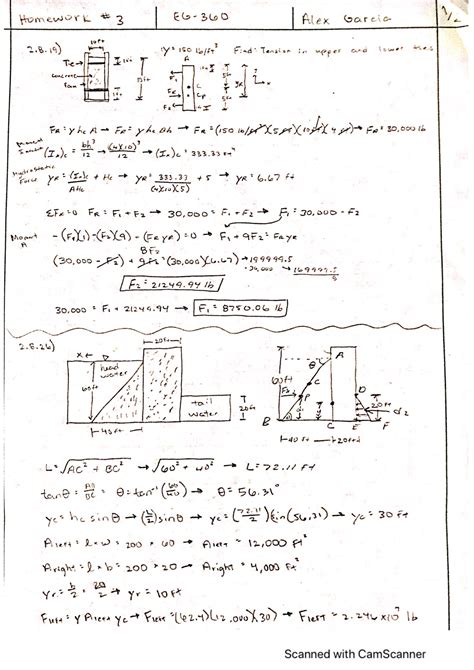 Homework # 3 EG-360 Alex Garcia 1/2
2.8.19) 10ft γ = 150 lb/ft³ Find: Tension in upper and lower ties
Tie
concrete
Form
FR = γ hc A → FR = γ hc bh → FR = (150 lb/ft³)(5ft)(10ft)(4ft) → FR = 30,000 lb
Moment (Ix)c = bh³/12 → (4)(10)³/12 → (Ix)c = 333.33 ft⁴
Hydrostatic Force yR = (Ix)c/Ahc + hc → yR = 333.33/(4)(10)(5) + 5 → yR = 6.67 ft
ΣFx=0 FR = F1 + F2 → 30,000 = F1 + F2 → F1 = 30,000 - F2
Moment A -(F1)(1) -(F2)(9) - (FR yR) = 0 → F1 + 9F2 = FR yR
(30,000 - F2) + 9F2 = (30,000)(6.67) → 199999.5
8F2
-30,000 → 169999.5
8
F2 = 21249.94 lb
30,000 = F1 + 21249.94 → F1 = 8750.06 lb
2.8.26) 20ft
x head water 60ft
tail water 20ft
40ft
A θ C P B C E F D d2
60ft 20ft
40ft 20ft
L = √AC² + BC² → √60² + 40² → L = 72.11 ft
θ = tan⁻¹(60/40) → θ = 56.31°
yc = hc sinθ → (h/2) sinθ → yc = (72.11/2) sin(56.31) → yc = 30 ft
Aleft = l × w = 200 × 60 → Aleft = 12,000 ft²
Aright = l × b = 200 × 20 → Aright = 4,000 ft²
yr = h/2 = 20/2 → yr = 10ft
Fleft = γ Aleft yc → Fleft = (62.4)(12,000)(30) → Fleft = 2.246 x10⁷ lb
Scanned with CamScanner